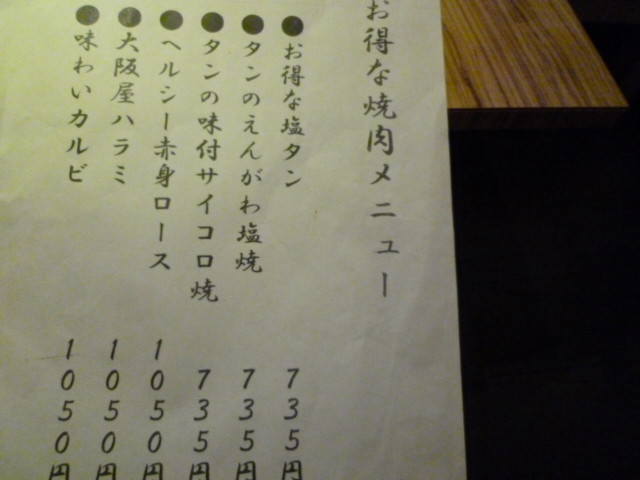 お得な焼肉メニュー
●お得な塩タン 735円
●タンのえんがわ塩焼 735円
●タンの味付サイコロ焼 735円
●ヘルシー赤身ロース 1050円
●大阪屋ハラミ 1050円
●味わいカルビ 1050円